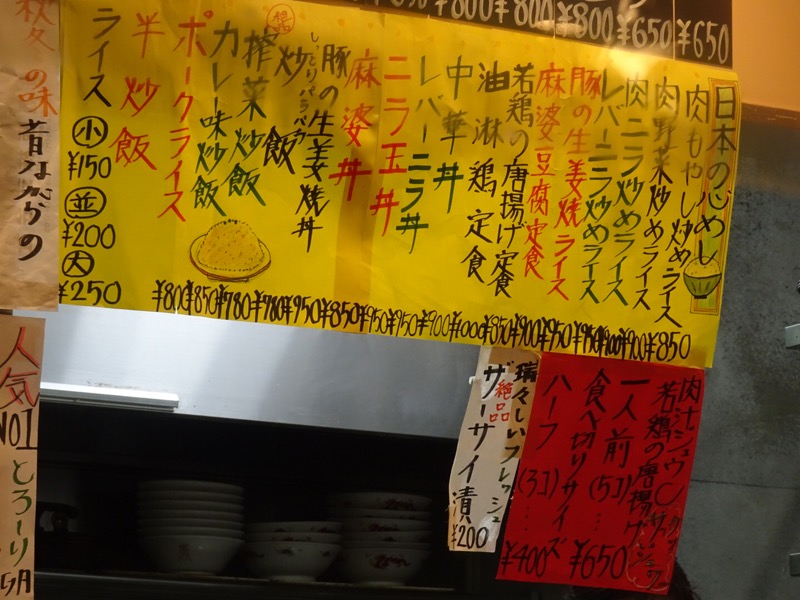 ¥800 ¥800 ¥800 ¥650 ¥650
日本の心めし
肉もやし炒めライス
肉野菜炒めライス
肉ニラ炒めライス
レバーニラ炒めライス
豚の生姜焼ライス
麻婆豆腐定食
若鶏の唐揚げ定食
油淋鶏定食
中華丼
レバーニラ丼
ニラ玉丼
麻婆丼
豚の生姜焼丼
しっとりパラパラ
絶品
炒飯
搾菜炒飯
カレー味炒飯
ポークライス
半炒飯
¥800 ¥850 ¥780 ¥780 ¥950 ¥850 ¥950 ¥950 ¥900 ¥1000 ¥850 ¥900 ¥950 ¥950 ¥900 ¥900 ¥850
ライス
小 ¥150
並 ¥200
大 ¥250
の味
昔ながらの
人気
NO1
とろーり
肉汁ジュワ
若鶏の唐揚げ
一人前(5コ)…¥650
食べ切りサイズ
ハーフ(3コ)…¥400
瑞々しいフレッシュ
絶品
ザーサイ漬
¥200